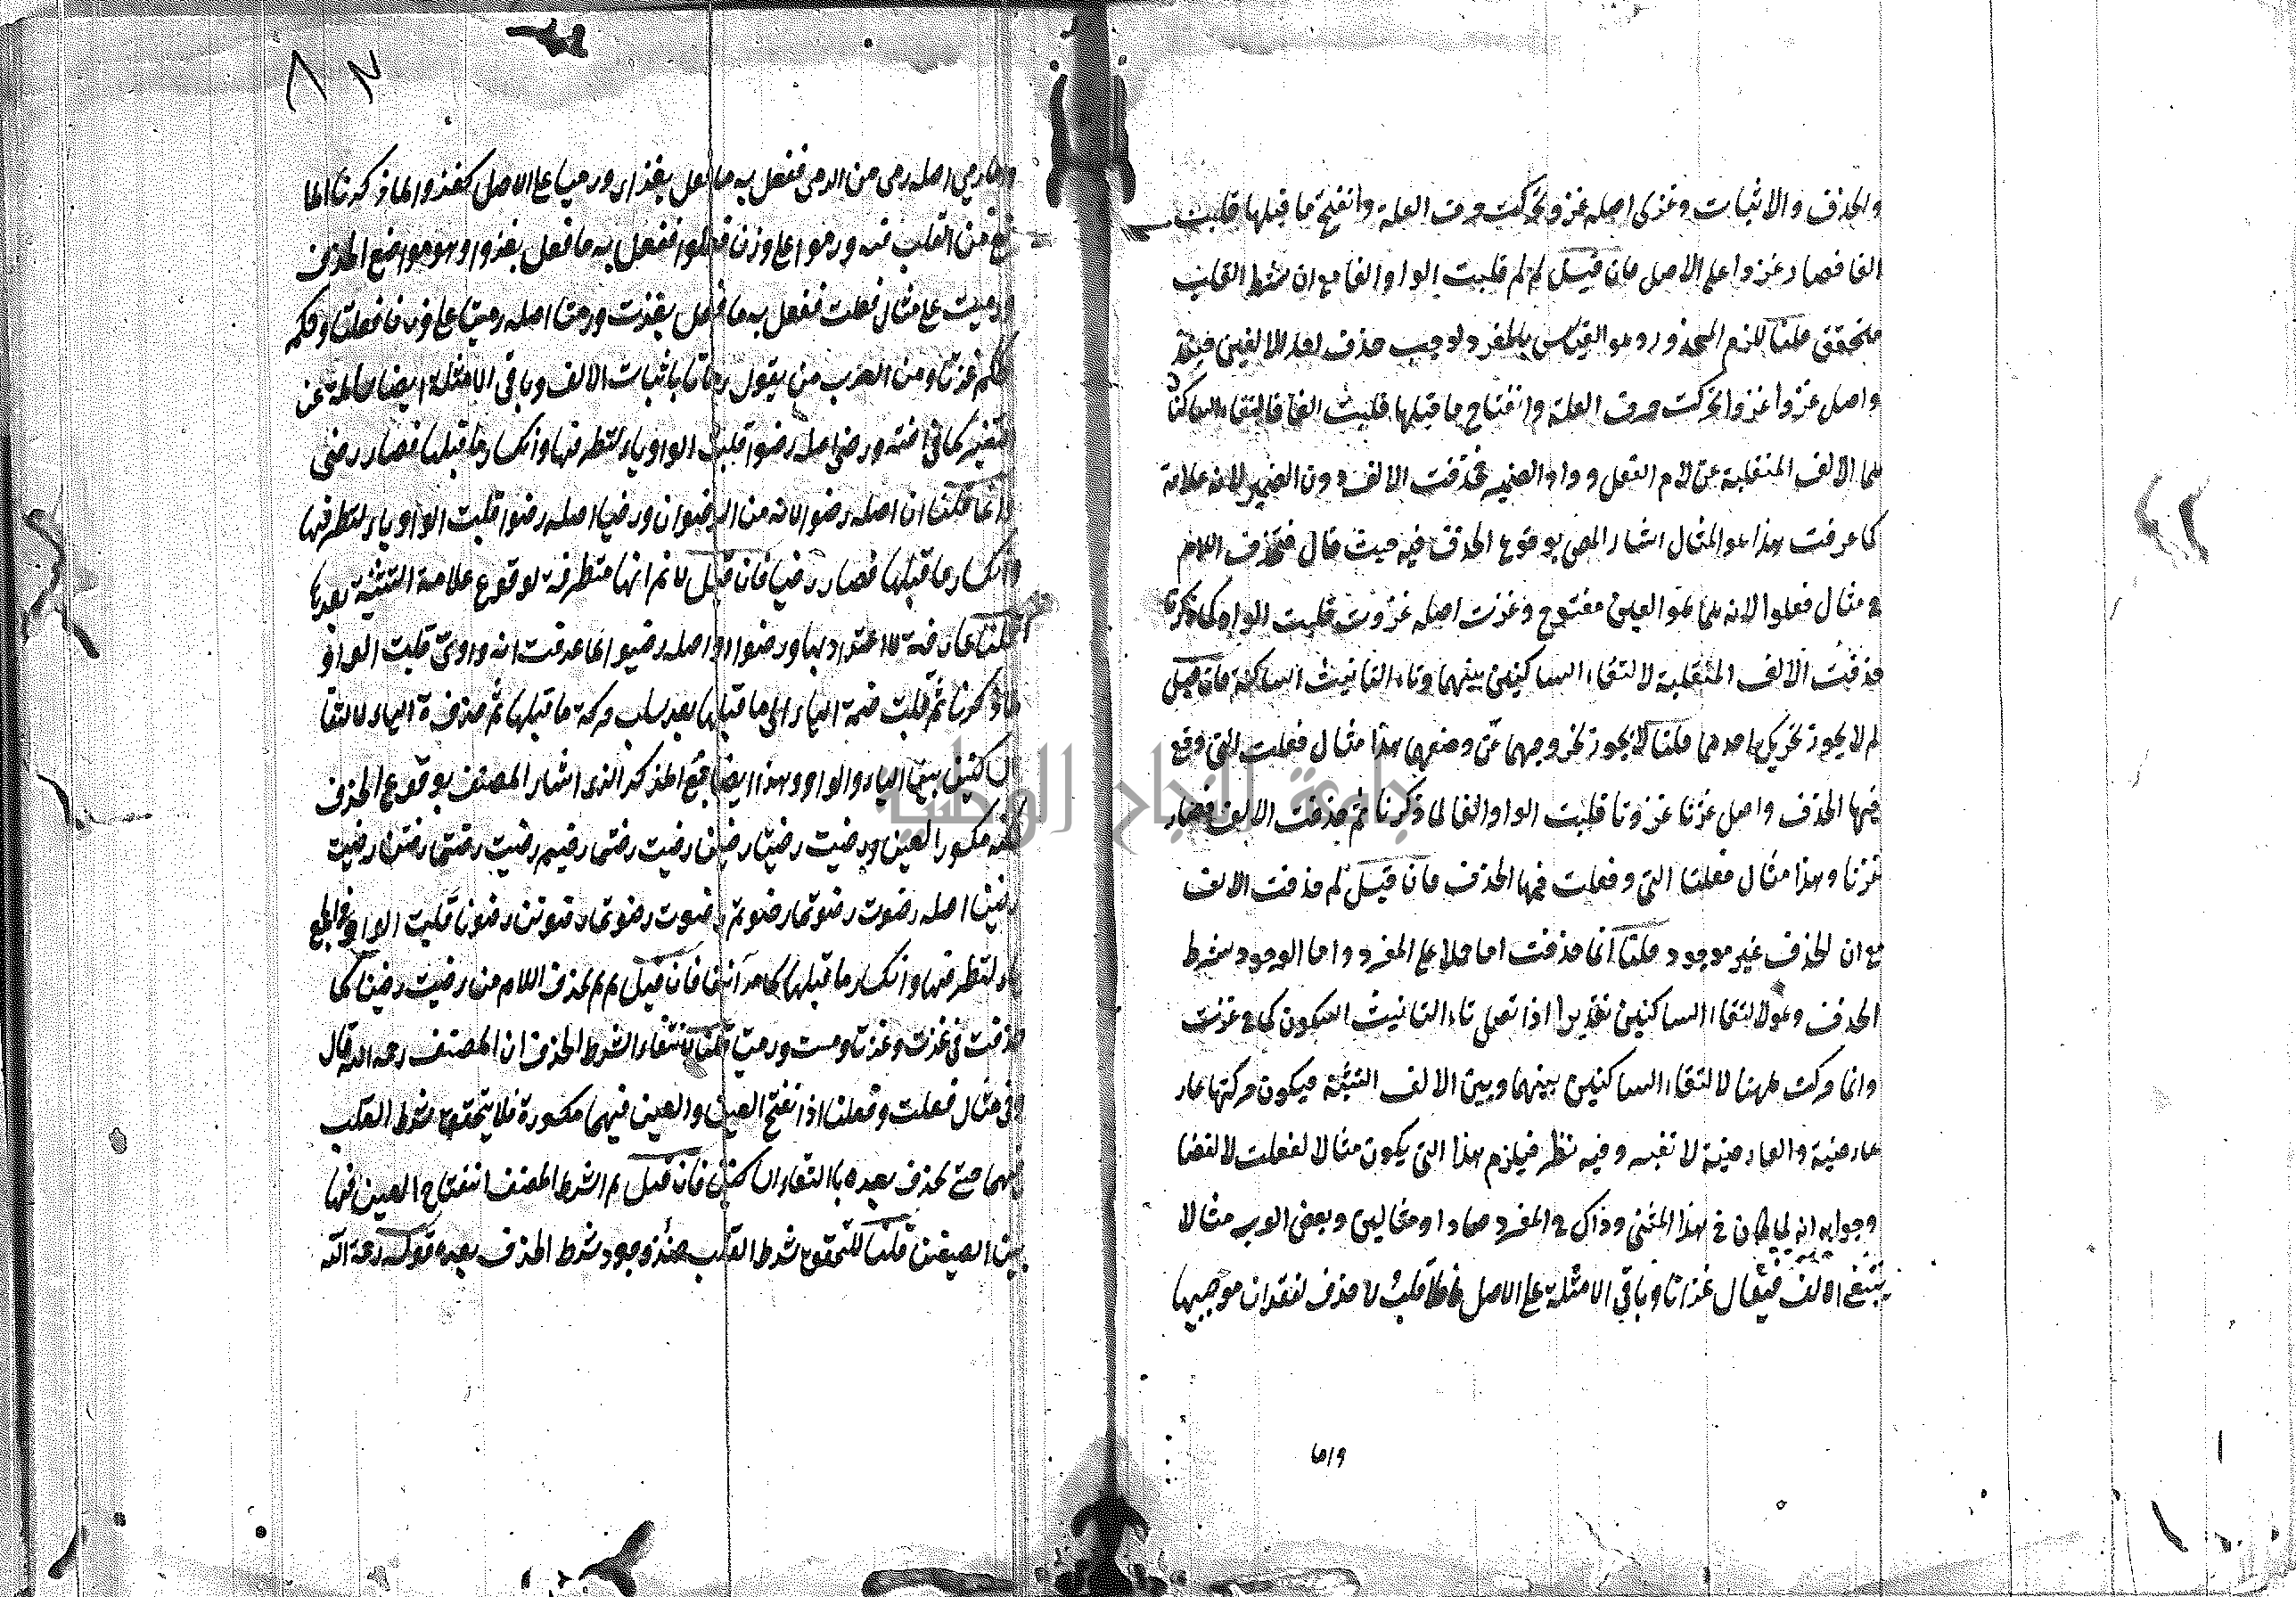 والحذف والاثبات وغزى اصله غزو تحركت حرف العلة وانفتح ما قبلها قلبت
الفا فصار غزوا على الاصل فان قيل لم لم قلبت الواو الفا مع ان شرط القلب
متحقق قلنا للزم المحذور وهو القياس بالمفرد لوجيب حذف احد الالفين فيئذ
واصل غزوا غزووا تحركت حرف العلة وانفتاح ما قبلها قلبت الفا فالتقاء الساكنا
هما الالف المنقلبة عن لام الفعل وواو الضمير فحذفت الالف دون الضمير لانه علامة
كما عرفت هذا هو المثال اشار المص بوقوع الحذف فيه حيث قال فتحذف اللام
في مثال فعلوا لانه مما هو العين مفتوح وغزت اصله غزوت قلبت الواو كما ذكرنا
حذفت الالف المنقلبة لالتقاء الساكنين بينهما وتاء التانيث الساكنة فان قيل
لم لا يجوز تحريك احدهما قلنا لا يجوز لخروجهما عن وضعهما هذا مثال فعلت التي وقع
فيها الحذف واصل غزتا غزوتا قلبت الواو الفا لما ذكرنا ثم حذفت الالف فصار
غزتا وهذا مثال فعلتا التي وقعت فيها الحذف فان قيل لم حذفت الالف
مع ان الحذف غير موجود قلنا انما حذفت اما حملا على المفرد واما الوجود شرط
الحذف وهو لالتقاء الساكنين تقديرا اذا تصلى تاء التانيث السكون كما في غزت
وانما حركت ههنا لالتقاء الساكنين بينهما وبين الالف التثنية فيكون حركتها عار
عارضية والعارضية لا تعتبر وفيه نظر فيلزم هذا التي يكون مثالا لفعلت لا لفعلتا
وجوابه انه لما كان في هذا المثنى وذاك في المفرد صارا ومثالين وبعض العرب مثالا
يبتغى الالف فيقال غزاتا وباقي الامثلة على الاصل فلا قلب ولا حذف لفقدان موجبها
واما
٨٢
واما رمي اصله رمى من الرمي ففعل به ما فعل بغذاى ورميا على الاصل كغذوا لما ذكرنا الما
نع من القلب فيه ورموا على وزن فعلوا ففعل به ما فعل بغذوا وهو مواضع الحذف
ورميت على مثال فعلت ففعل به ما فعل بغذت ورمتا اصله رميتا على وزن فعلتا وحكمه
كحكم غزتا ومن العرب من يقول رماتا باثبات الالف وباقي الامثلة ايضا سالمة عن
التغير كما في اخته ورضي اصله رضو قلبت الواو ياء لتطرفها وانكسار ما قبلها فصار رضي
وانما قلنا ان اصله رضو لانه من الرضوان ورضيا اصله رضوا قلبت الواو ياء لتطرفها
وانكسار ما قبلها فصار رضيا فان قيل لا نم انها متطرفة لوقوع علامة التثنية بعدها
قلنا عارضة لا اعتداد بها ورضوا اصله رضيوا لما عرفت انه واوى قلبت الواو
لما ذكرنا ثم قلبت ضمة الياء الى ما قبلها بعد سلب حركة ما قبلها ثم حذفة الياء لالتقا
الساكنين بين الياء والواو وهذا ايضا جمع المذكر الذى اشار المصنف بوقوع الحذف
لكنه مكسور العين ورضيت رضيتا رضين رضيت رضيتما رضيتم رضيت رضيتما رضيتن رضيت
رضينا اصله رضوت رضوتما رضوتم رضوت رضوتما رضوتن رضونا قلبت الواو في الجمع
ياء لتطرفها وانكسار ما قبلها كما مر آنفا فان قيل لم لم يحذف اللام من رضيت رضينا كما
حذفت في غزت وغزتا ورمت ورمتا قلنا لانتفاء الشرط الحذف ان المصنف رحمه الله قال
وفي مثال فعلت وفعلنا اذا نفتح العين والعين فيهما مكسورة فلا يتحقق شرط القلب
فيهما حتى يحذف بعده بالتقاء الساكنين فان قيل لم اشرط المصنف انفتاح العين فيها
بين الصيغتين قلنا لتحقق شرط القلب حينئذ وجود شرط الحذف بعده قوله رحمة الله
جامعة النجاح الوطنية